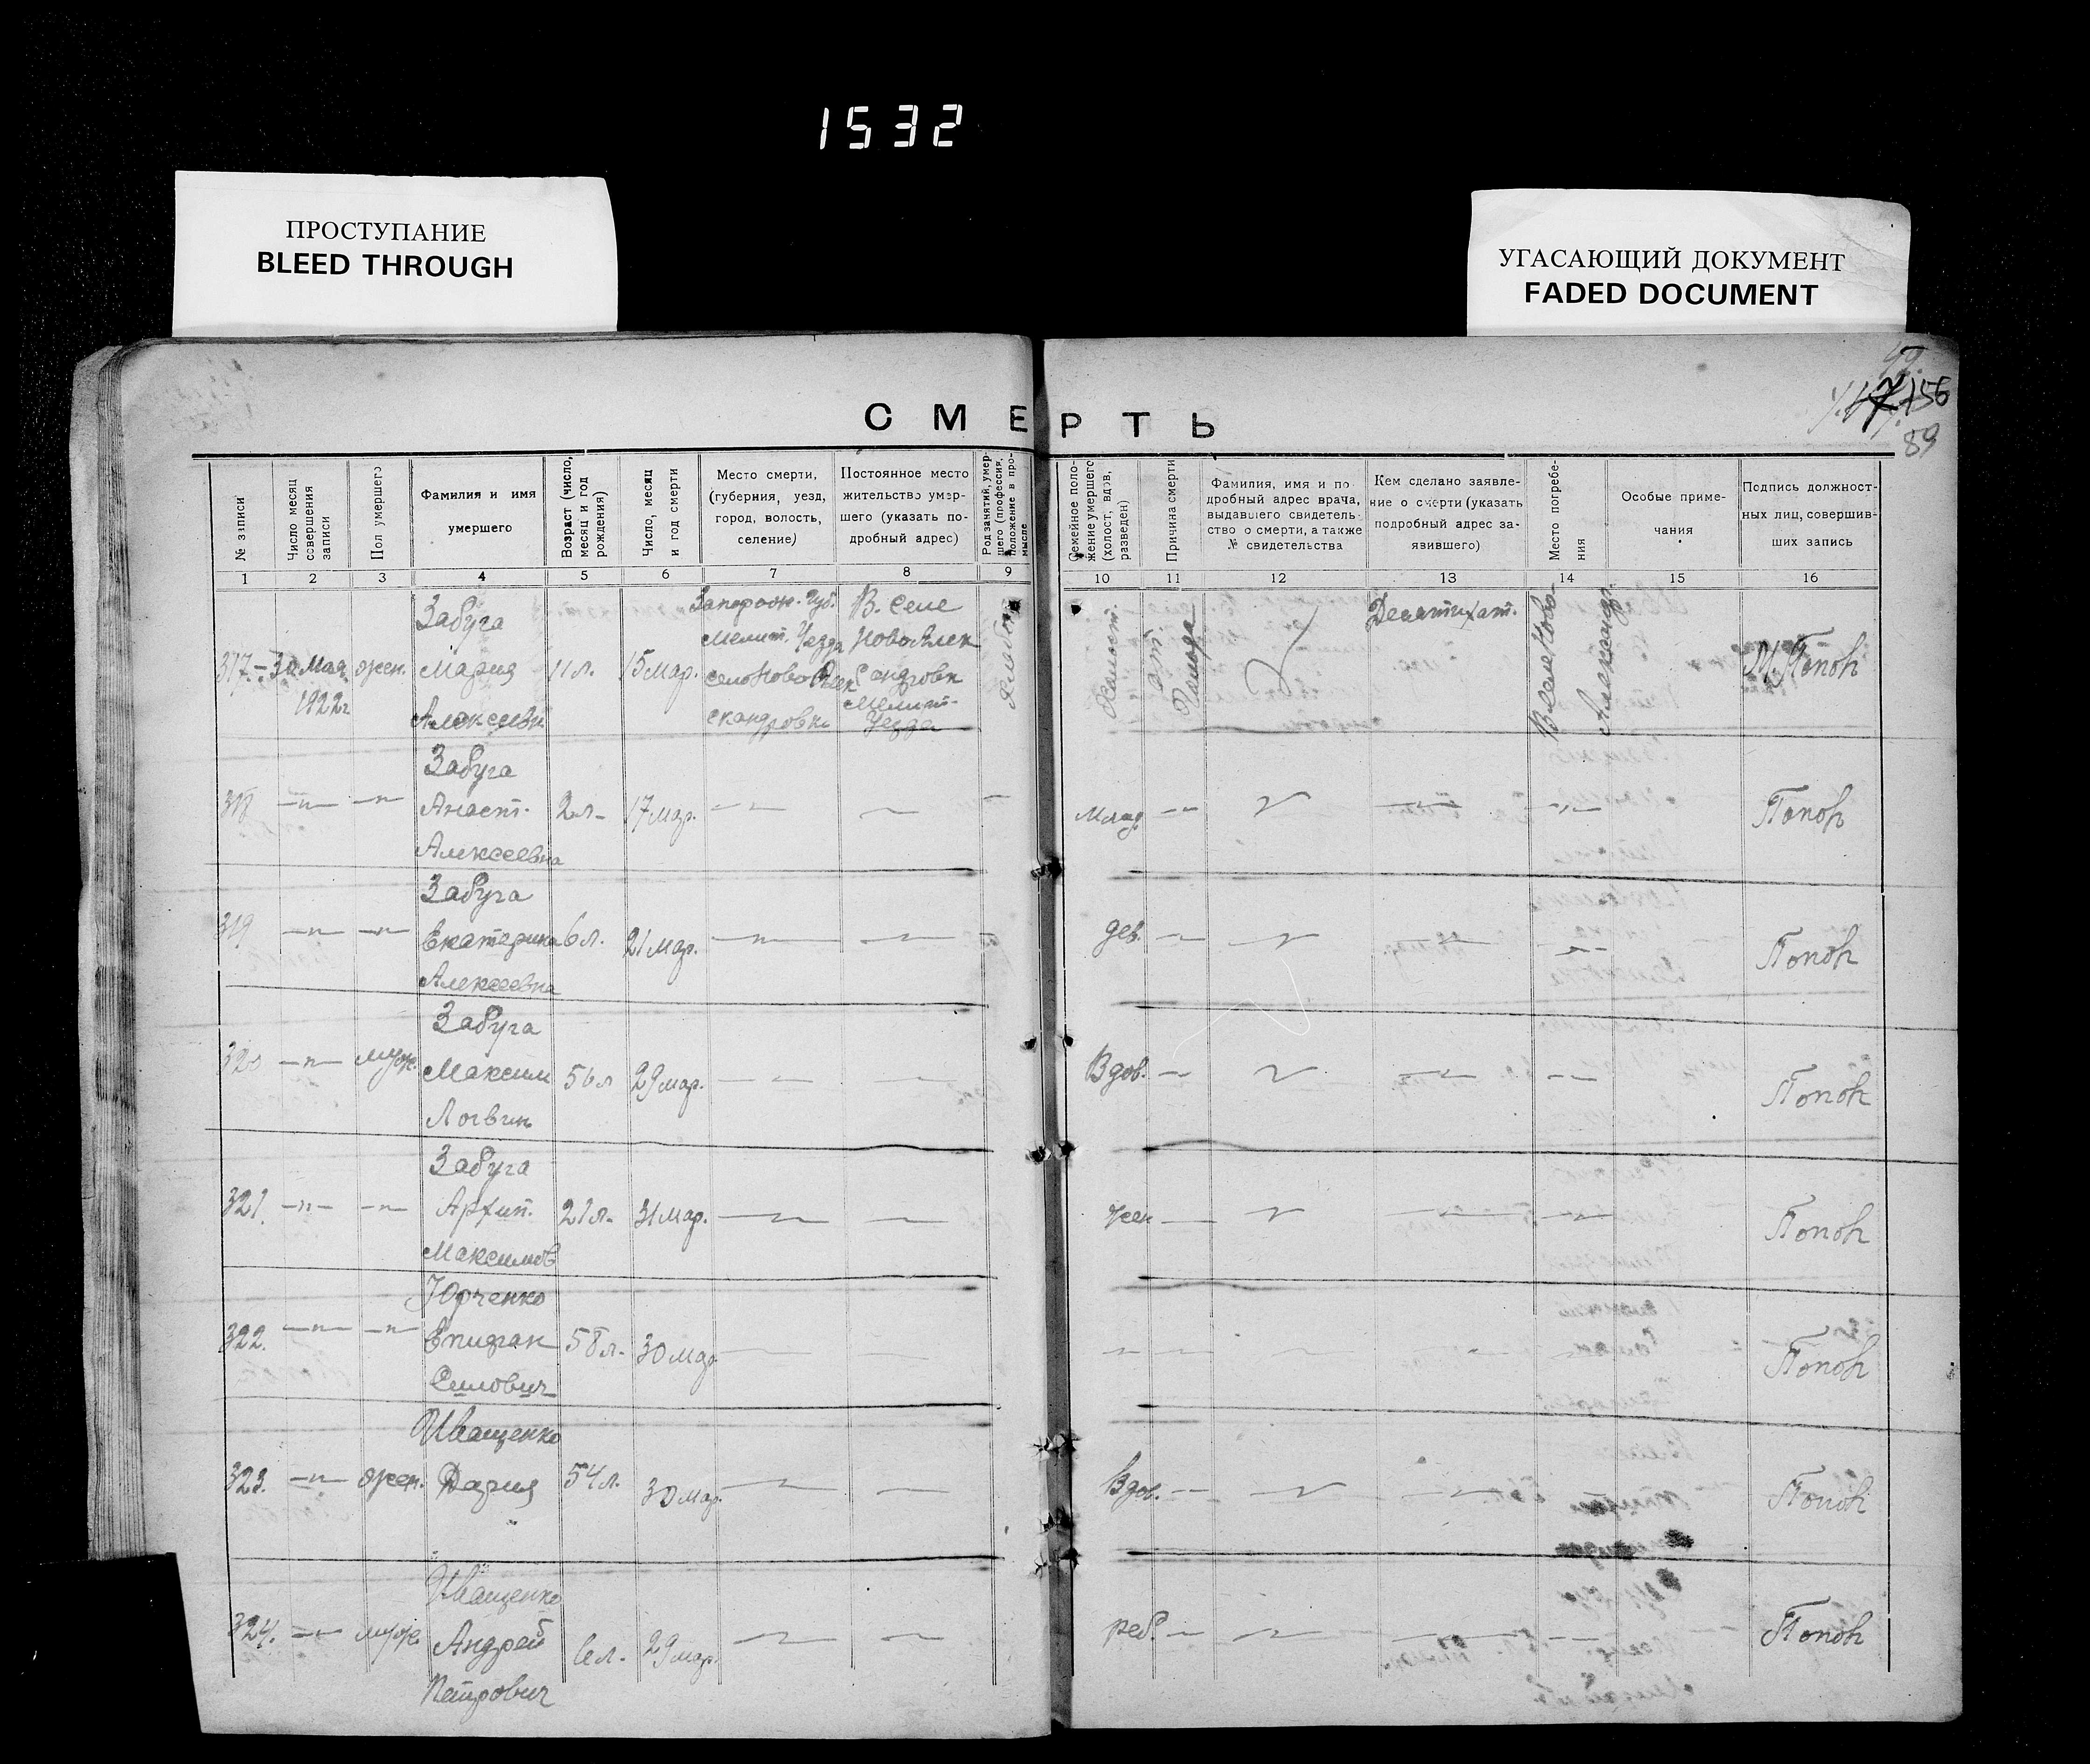 1532
ПРОСТУПАНИЕ
BLEED THROUGH
УГАСАЮЩИЙ ДОКУМЕНТ
FADED DOCUMENT
156
89
СМЕРТЬ
№ записи
Число месяц совершения записи
Пол умершего
Фамилия и имя умершего
Возраст (число, месяц и год рождения)
Число, месяц и год смерти
Место смерти, (губерния, уезд, город, волость, селение)
Постоянное место жительство умершего (указать подробный адрес)
Род занятий, умершего (профессия, положение в промысле
Семейное положение умершего (холост, вдов, разведен)
Причина смерти
Фамилия, имя и подробный адрес врача, выдавшего свидетельство о смерти, а также № свидетельства
Кем сделано заявление о смерти (указать подробный адрес заявившего)
Место погребения
Особые примечания
Подпись должностных лиц, совершивших запись
1 2 3 4 5 6 7 8 9 10 11 12 13 14 15 16
317 30 Мая 1922г жен. Забуга Мария 11 л. 15 мар.
Запорож. Губ. Мелит. Уезда село Ново
В. Селе Ново Алек
Мелит. Уезда
от Голода
М. Попов
318 —"— —"— Забуга Анаст. Алексеевна 2 л. 17 мар. млад. Попов
319 —"— —"— Забуга Екатерина Алексеевна 6 л. 21 мар. —"— дев. Попов
320 —"— муж. Забуга Максим Логвин 56 л 29 мар. Вдов. Попов
321. —"— —"— Забуга Архип. Максимов 21 л. 31 мар. Попов
322. —"— —"— Юрченко Епифан Силович 58 л. 30 мар Попов
323. —"— жен. Иващенко Дария 54 л. 30 мар. Вдов. Попов
324. —"— муж. Иващенко Андрей Петрович 6 л. 29 мар. реб. Попов